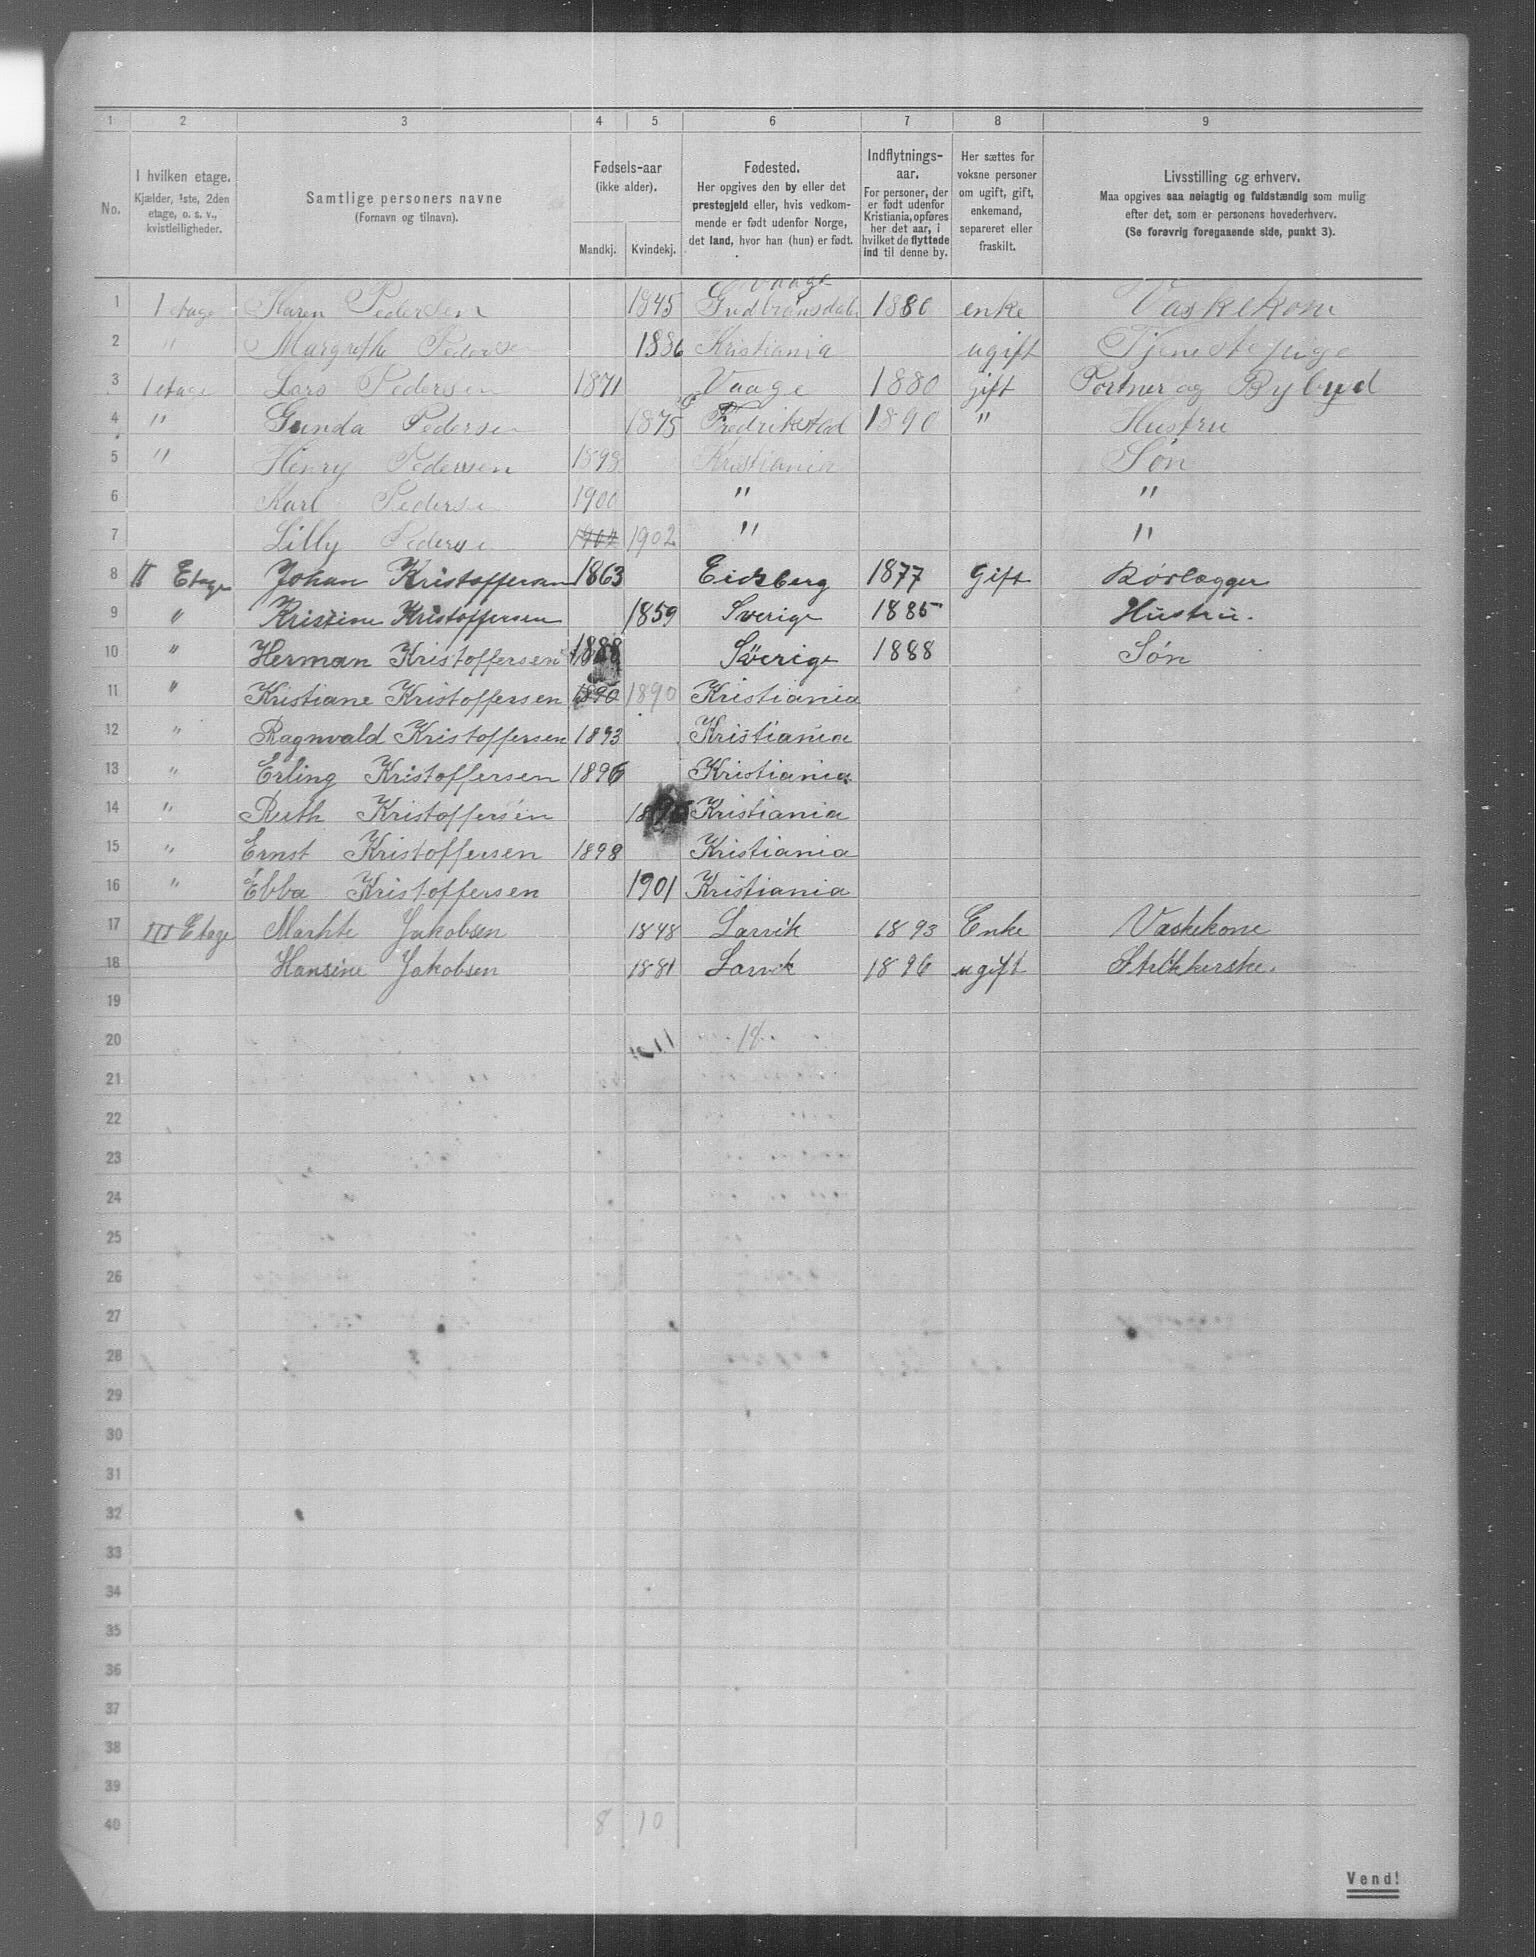 1 2 3 4 5 6 7 8 9
No.
I hvilken etage.
Kjælder, 1ste, 2den
etage, o. s. v.,
kvistleiligheder.
Samtlige personers navne
(Fornavn og tilnavn).
Fødsels-aar
(ikke alder).
Mandkj. Kvindekj.
Fødested.
Her opgives den by eller det
prestegjeld eller, hvis vedkom-
mende er født udenfor Norge,
det land, hvor han (hun) er født.
Indflytnings-
aar.
For personer, der
er født udenfor
Kristiania, opføres
her det aar, i
hvilket de flyttede
ind til denne by.
Her sættes for
voksne personer
om ugift, gift,
enkemand,
separeret eller
fraskilt.
Livsstilling og erhverv.
Maa opgives saa nøiagtig og fuldstændig som mulig
efter det, som er personens hovederhverv.
(Se forøvrig foregaaende side, punkt 3).
Vaage
1 1 etage Karen Pedersen 1845 Gudbransdale 1880 enke Vaskekone
2 " Margrethe Pedersen 1886 Kristiania ugift Tjenestepige
3 1 etage Lars Pedersen 1871 Vaage 1880 Gift Portner og Bybud
4 " Gunda Pedersen 1875 Fredrikstad 1890 " Hustru
5 " Henry Pedersen 1898 Kristiania Søn
6 Karl Pedersen 1900 " "
7 Lilly Pedersen 1902 1902 " "
8 II Etage Johan Kristoffersen 1863 Eidsberg 1877 Gift Rørlægger
9 " Kristine Kristoffersen 1859 Sverige 1885 Hustru.
10 " Herman Kristoffersen 1888 Sverige 1888 Søn
11 " Kristiane Kristoffersen 1890 1890 Kristiania
12 " Ragnvald Kristoffersen 1893 Kristiania
13 " Erling Kristoffersen 1896 Kristiania
14 " Ruth Kristoffersen Kristiania
15 " Ernst Kristoffersen 1898 Kristiania
16 " Ebba Kristoffersen 1901 Kristiania
17 III Etage Marhte Jakobsen 1848 Larvik 1893 Enke Vaskekone
18 Hansine Jakobsen 1881 Larvik 1896 ugift Strikkerske.
19
20 18
21
22
23
24
25
26
27
28
29
30
31
32
33
34
35
36
37
38
39
40 8 10
Vend!